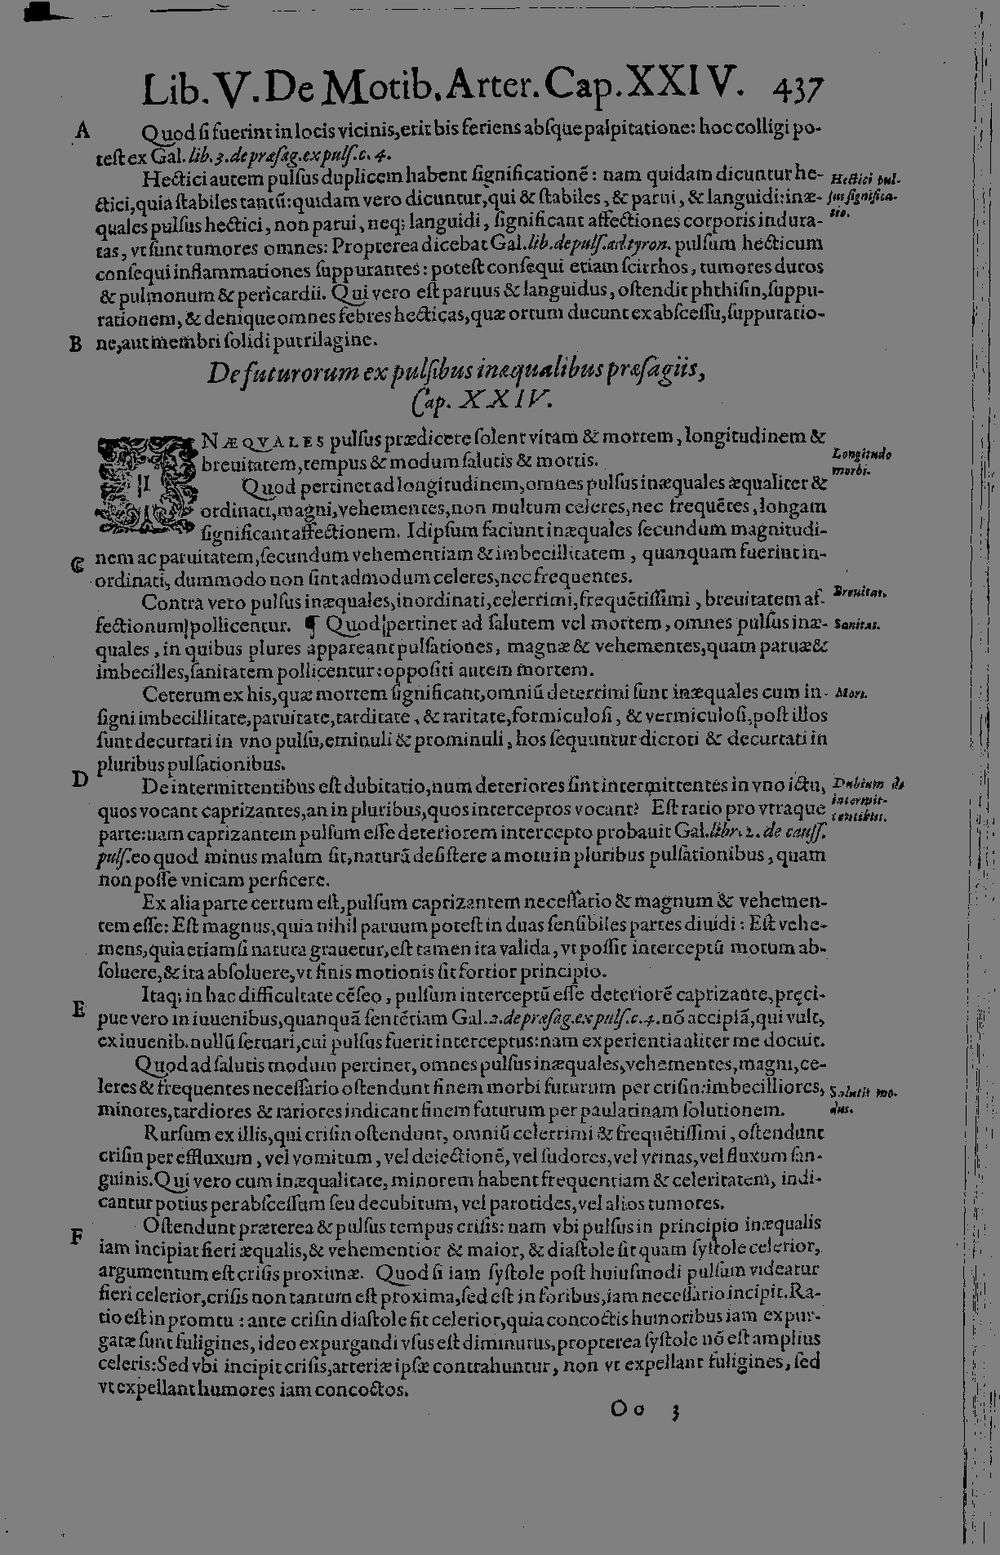 Lib. V. De Motib. Arter. Cap. XXIV. 437
A Quod si fuerint in locis vicinis, erit bis feriens absque palpitatione: hoc colligi po-
test ex Gal. lib. 3. de præsag. ex puls. c. 4.
Hectici autem pulsus duplicem habent significationẽ: nam quidam dicuntur he-
Hectici pul-
ctici, quia stabiles tantũ: quidam vero dicuntur, qui & stabiles, & parui, & languidi: inæ-
sus significa-
tio.
quales pulsus hectici, non parui, neq; languidi, significant affectiones corporis indura-
tas, vt sunt tumores omnes: Propterea dicebat Gal. lib. de puls. ad tyron. pulsum hecticum
consequi inflammationes suppurantes: potest consequi etiam scirrhos, tumores duros
& pulmonum & pericardii. Qui vero est paruus & languidus, ostendit phthisin, suppu-
rationem, & denique omnes febres hecticas, quæ ortum ducunt ex abscessu, suppuratio-
B ne, aut membri solidi putrilagine.
De futurorum ex pulsibus inæqualibus præsagiis,
Cap. XXIV.
INÆQVALES pulsus prædicere solent vitam & mortem, longitudinem &
Longitudo
morbi.
breuitatem, tempus & modum salutis & mortis.
Quod pertinet ad longitudinem, omnes pulsus inæquales æqualiter &
ordinati, magni, vehementes, non multum celeres, nec frequẽtes, longam
significant affectionem. Id ipsum faciunt inæquales secundum magnitudi-
C nem ac paruitatem, secundum vehementiam & imbecillitatem, quanquam fuerint in-
ordinati, dummodo non sint admodum celeres, nec frequentes.
Contra vero pulsus inæquales, inordinati, celerrimi, frequẽtissimi, breuitatem af-
Breuitas.
fectionum pollicentur. ¶ Quod pertinet ad salutem vel mortem, omnes pulsus inæ-
Sanitas.
quales, in quibus plures appareant pulsationes, magnæ & vehementes, quam paruæ &
imbecilles, sanitatem pollicentur: oppositi autem mortem.
Ceterum ex his, quæ mortem significant, omniũ deterrimi sunt inæquales cum in-
Mors.
signi imbecillitate, paruitate, tarditate, & raritate, formiculosi, & vermiculosi, post illos
sunt decurtati in vno pulsu, eminuli & prominuli, hos sequuntur dicroti & decurtati in
pluribus pulsationibus.
D De intermittentibus est dubitatio, num deteriores sint intermittentes in vno ictu,
Dubium de
intermit-
tentibus.
quos vocant caprizantes, an in pluribus, quos interceptos vocant? Est ratio pro vtraque
parte: nam caprizantem pulsum esse deteriorem intercepto probauit Gal. libr. 2. de causs.
puls. eo quod minus malum sit, naturã desistere a motu in pluribus pulsationibus, quam
non posse vnicam perficere.
Ex alia parte certum est, pulsum caprizantem necessario & magnum & vehemen-
tem esse: Est magnus, quia nihil paruum potest in duas sensibiles partes diuidi: Est vehe-
mens, quia etiamsi natura grauetur, est tamen ita valida, vt possit interceptũ motum ab-
soluere, & ita absoluere, vt finis motionis sit fortior principio.
E Itaq; in hac difficultate cẽseo, pulsum interceptũ esse deteriorẽ caprizante, pręci-
pue vero in iuuenibus, quanquã sentẽtiam Gal. 2. de præsag. ex puls. c. 4. nõ accipiã, qui vult,
ex iuuenib. nullũ seruari, cui pulsus fuerit interceptus: nam experientia aliter me docuit.
Quod ad salutis modum pertinet, omnes pulsus inæquales, vehementes, magni, ce-
leres & frequentes necessario ostendunt finem morbi futurum per crisin: imbecilliores,
Salutis mo-
dus.
minores, tardiores & rariores indicant finem futurum per paulatinam solutionem.
Rursum ex illis, qui crisin ostendunt, omniũ celerrimi & frequẽtissimi, ostendunt
crisin per effluxum, vel vomitum, vel deiectionẽ, vel sudores, vel vrinas, vel fluxum san-
guinis. Qui vero cum inæqualitate, minorem habent frequentiam & celeritatem, indi-
cantur potius per abscessum seu decubitum, vel parotides, vel alios tumores.
F Ostendunt præterea & pulsus tempus crisis: nam vbi pulsus in principio inæqualis
iam incipiat fieri æqualis, & vehementior & maior, & diastole sit quam systole celerior,
argumentum est crisis proximæ. Quod si iam systole post huiusmodi pulsum videatur
fieri celerior, crisis non tantum est proxima, sed est in foribus, iam necessario incipit. Ra-
tio est in promtu: ante crisin diastole fit celerior, quia concoctis humoribus iam expur-
gatæ sunt fuligines, ideo expurgandi vsus est diminutus, propterea systole nõ est amplius
celeris: Sed vbi incipit crisis, arteriæ ipsæ contrahuntur, non vt expellant fuligines, sed
vt expellant humores iam concoctos.
Oo 3